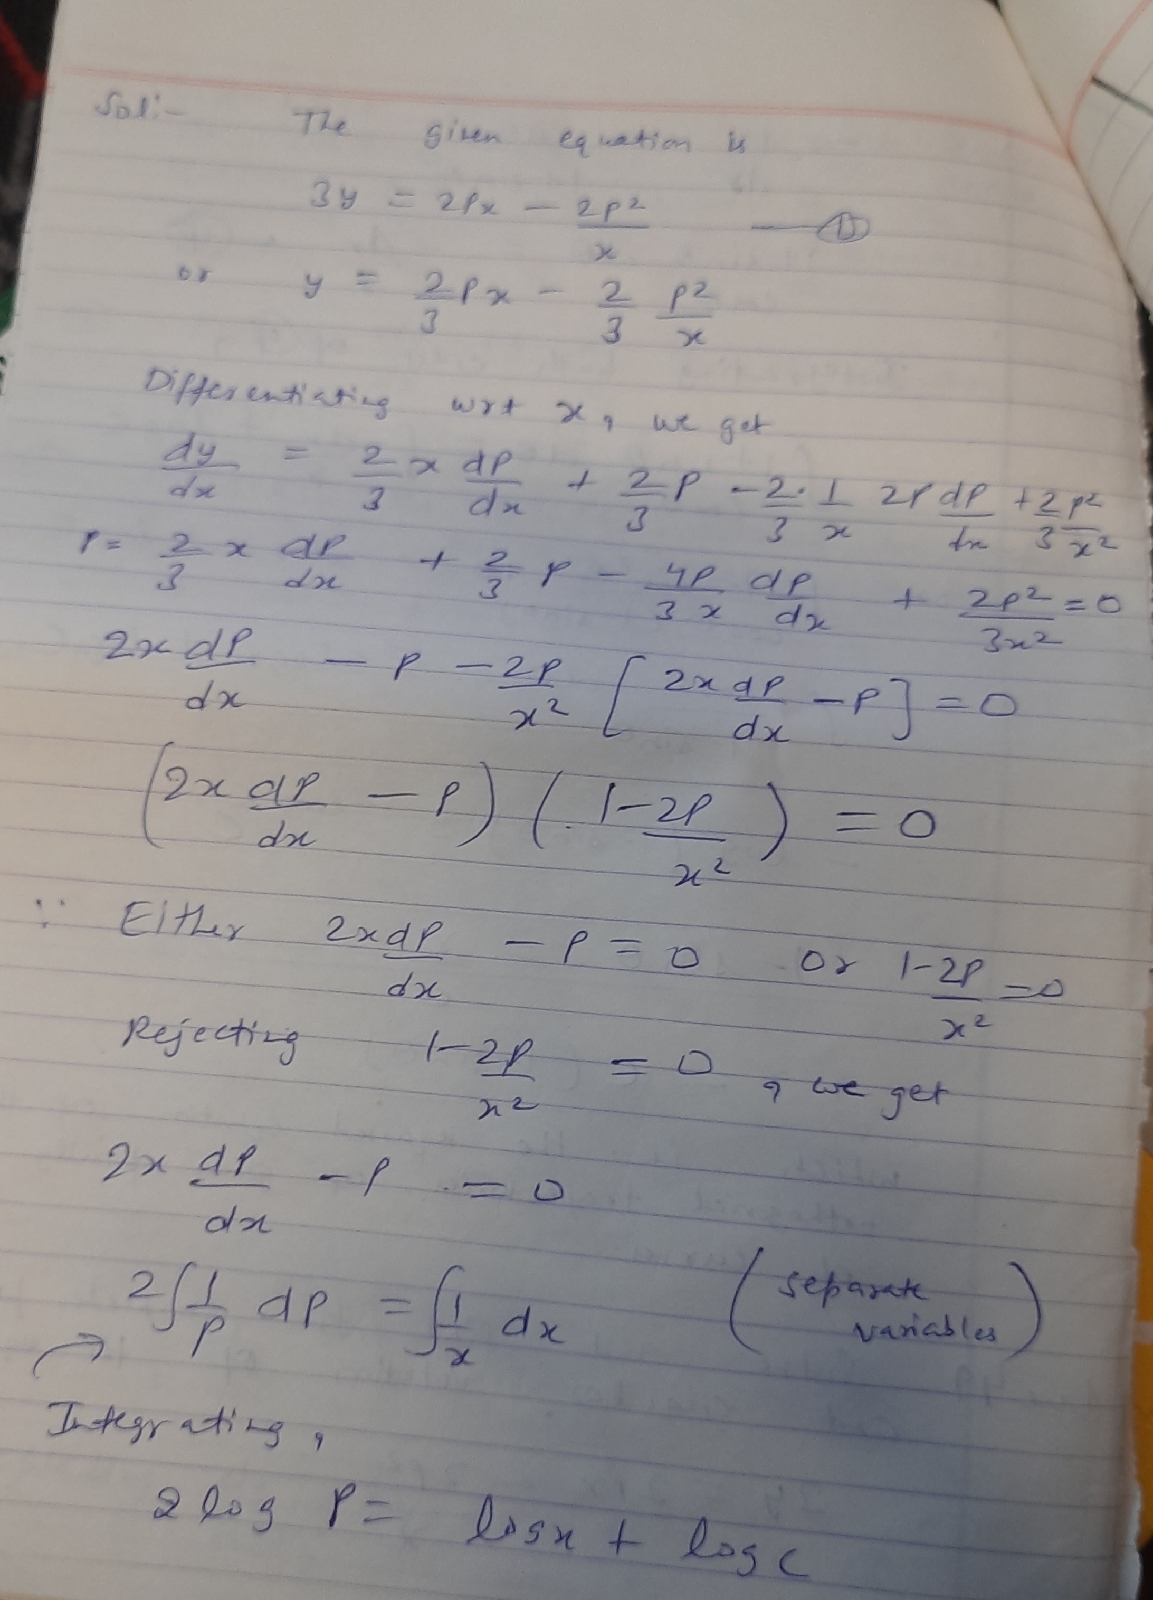 Sol:-   The given equation is
3y = 2Px - 2P²/x   —①
or   y = 2/3 Px - 2/3 P²/x
Differentiating wrt x, we get
dy/dx = 2/3 x dP/dx + 2/3 P - 2/3 · 1/x 2P dP/dx + 2/3 P²/x²
P = 2/3 x dP/dx + 2/3 P - 4P/3x dP/dx + 2P²/3x² = 0
2x dP/dx - P - 2P/x² [2x dP/dx - P] = 0
(2x dP/dx - P) (1 - 2P/x²) = 0
∵ Either 2x dP/dx - P = 0   or   1 - 2P/x² = 0
Rejecting 1 - 2P/x² = 0, we get
2x dP/dx - P = 0
2∫1/P dP = ∫1/x dx   (separate variables)
Integrating,
2 log P = log x + log c